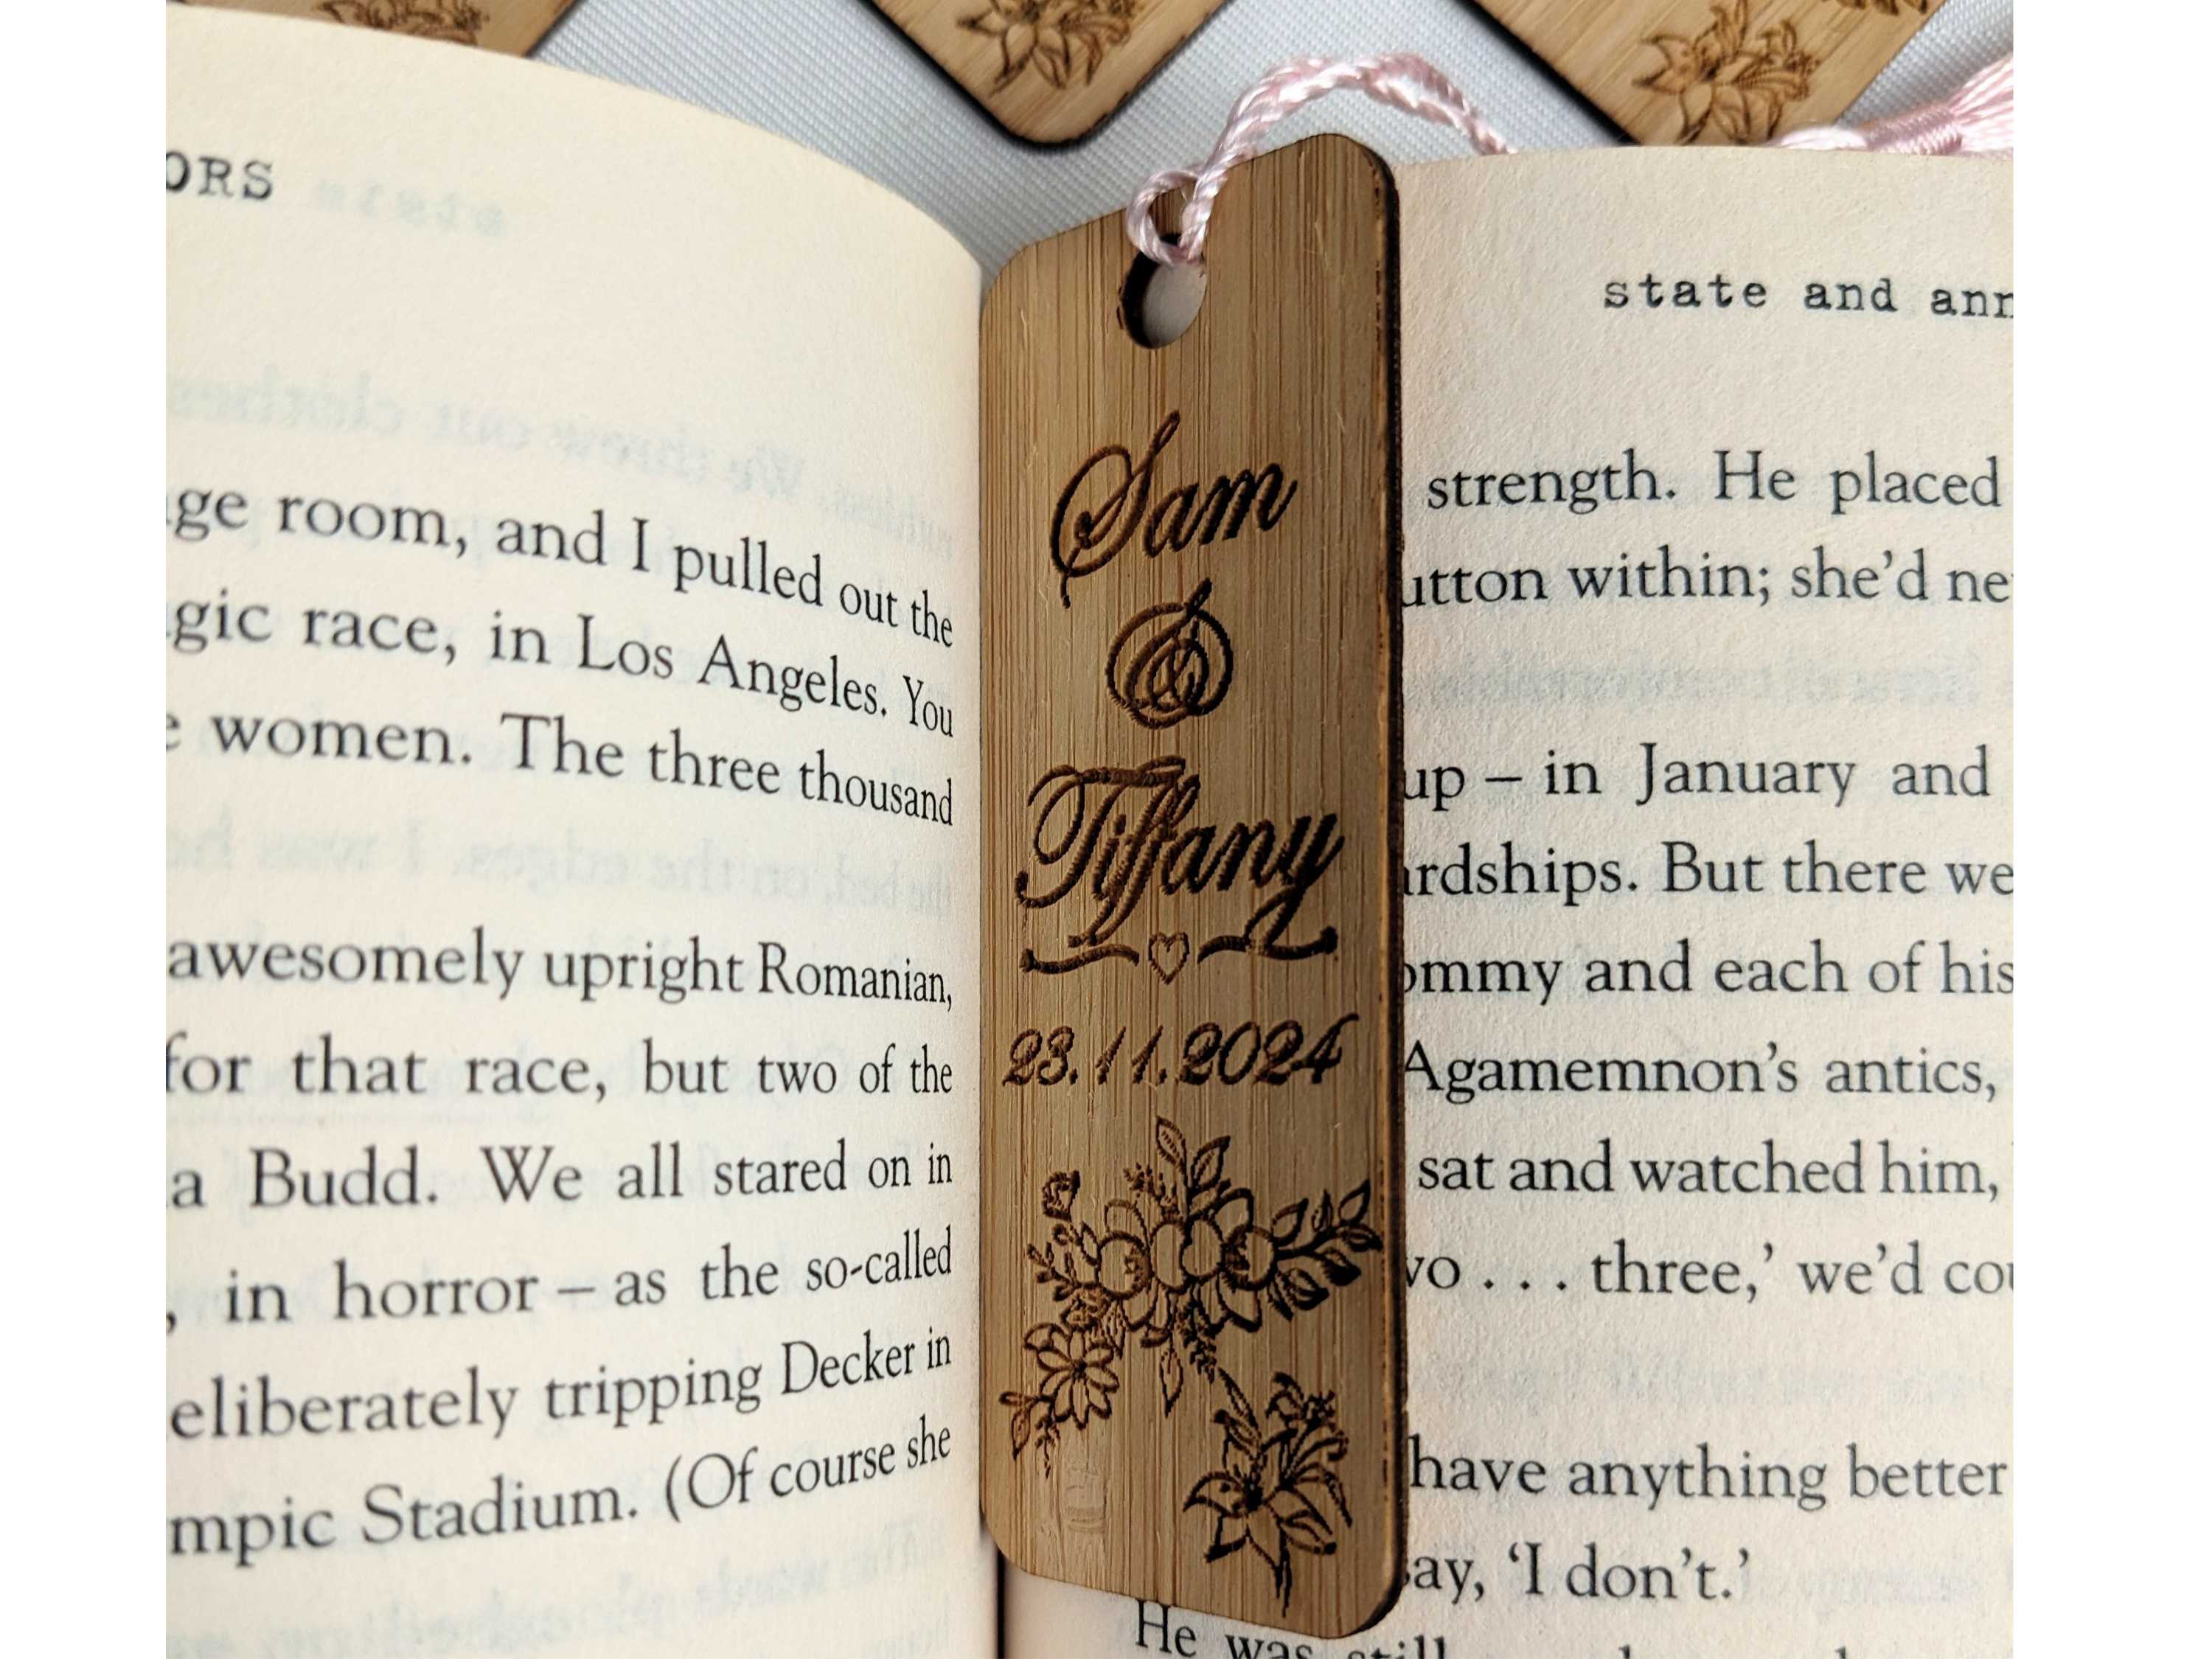 ORS
ge room, and I pulled out the
gic race, in Los Angeles. You
women. The three thousand
awesomely upright Romanian,
for that race, but two of the
a Budd. We all stared on in
, in horror – as the so-called
eliberately tripping Decker in
mpic Stadium. (Of course she
Sam
&
Tiffany
23.11.2024
state and ann
strength. He placed
utton within; she'd ne
up – in January and
ardships. But there we
ommy and each of his
Agamemnon's antics,
sat and watched him,
wo . . . three,' we'd cou
have anything better
say, 'I don't.'
He was still